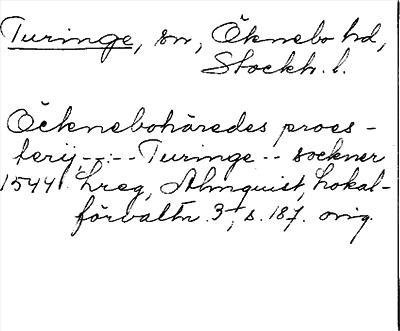 Turinge, sn, Öknebo hd,
Stockh. l.
Öcknebohäredes proes-
terij--:-- Turinge -- sockner
1544 Lreg, Almquist, Lokal-
förvaltn. 3, s. 187. orig.